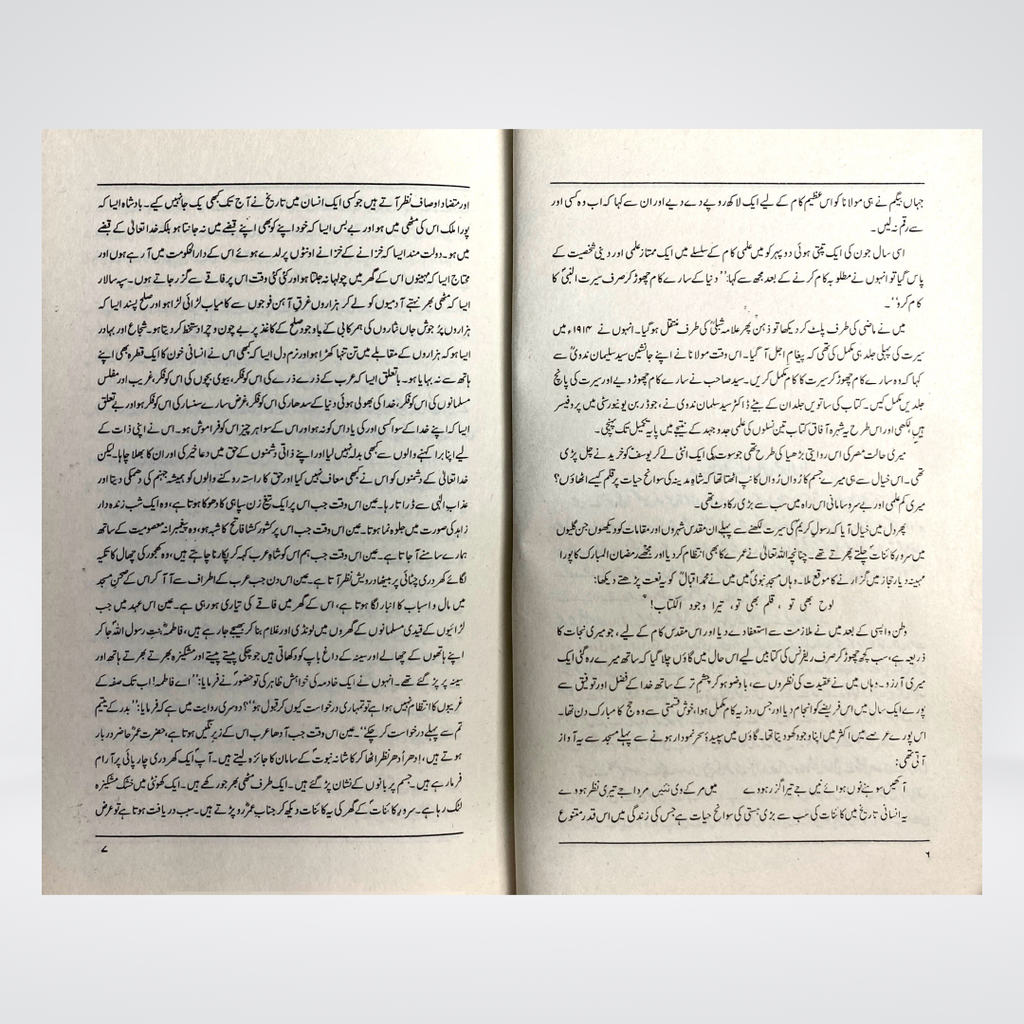 جہاں بیگم نے ہی مولانا کو اس عظیم کام کے لیے ایک لاکھ روپے دے دیے اور ان سے کہا کہ اب وہ کسی اور
سے رقم نہ لیں۔
اسی سال جون کی ایک تپتی ہوئی دوپہر کو میں علمی کام کے سلسلے میں ایک ممتاز علمی اور دینی شخصیت کے
پاس گیا تو انہوں نے مطلوبہ کام کرنے کے بعد مجھ سے کہا: ’’دنیا کے سارے کام چھوڑ کر صرف سیرت النبیؐ کا
کام کرو‘‘۔
میں نے ماضی کی طرف پلٹ کر دیکھا تو ذہن پھر علامہ شبلیؒ کی طرف منتقل ہو گیا۔ انہوں نے ۱۹۱۴ء میں
سیرت کی پہلی جلد ہی مکمل کی تھی کہ پیغامِ اجل آ گیا۔ اس وقت مولانا نے اپنے جانشین سید سلیمان ندویؒ سے
کہا کہ وہ سارے کام چھوڑ کر سیرت کا کام مکمل کریں۔ سید صاحب نے سارے کام چھوڑ دیے اور سیرت کی پانچ
جلدیں مکمل کیں۔ کتاب کی ساتویں جلد ان کے بیٹے ڈاکٹر سید سلمان ندوی نے، جو ڈربن یونیورسٹی میں پروفیسر
ہیں لکھی اور اس طرح یہ شہرہ آفاق کتاب تین نسلوں کی علمی جدوجہد کے نتیجے میں پایہ تکمیل تک پہنچی۔
میری حالت مصر کی اس روایتی بڑھیا کی طرح تھی جو سوت کی ایک انٹی لے کر یوسف کو خریدنے چل پڑی
تھی۔ اس خیال سے ہی میرے جسم کا رُواں رُواں کانپ اٹھتا تھا کہ شاہِ مدینہ کی سوانح حیات پر قلم کیسے اٹھاؤں؟
میری کم علمی اور بے سروسامانی اس راہ میں سب سے بڑی رکاوٹ تھی۔
پھر دل میں خیال آیا کہ رسولِ کریمؐ کی سیرت لکھنے سے پہلے ان مقدس شہروں اور مقامات کو دیکھوں جن گلیوں
میں سرورِ کائناتؐ چلتے پھرتے تھے۔ چنانچہ اللہ تعالیٰ نے عمرے کا بھی انتظام کر دیا اور مجھے رمضان المبارک کا پورا
مہینہ دیارِ حجاز میں گزارنے کا موقع ملا۔ وہاں مسجدِ نبویؐ میں میں نے محمد اقبالؒ کو یہ نعت پڑھتے دیکھا:
لوح بھی تو، قلم بھی تو، تیرا وجود الکتاب!
وطن واپسی کے بعد میں نے ملازمت سے استعفا دے دیا اور اس مقدس کام کے لیے، جو میری نجات کا
ذریعہ ہے، سب کچھ چھوڑ کر صرف ریفرنس کی کتابیں لیے اس حال میں گاؤں چلا گیا کہ ساتھ میرے رہ گئی ایک
میری آرزو۔ وہاں میں نے عقیدت کی نظروں سے، باوضو ہو کر چشمِ تر کے ساتھ خدا کے فضل اور توفیق سے
پورے ایک سال میں اس فریضے کو انجام دیا اور جس روز یہ کام مکمل ہوا، خوش قسمتی سے وہ حج کا مبارک دن تھا۔
اس پورے عرصے میں اکثر میں اپنا وجود کھو دیتا تھا۔ گاؤں میں سپیدۂ سحر نمودار ہونے سے پہلے مسجد سے یہ آواز
آتی تھی:
آکھیں سوہنے نوں ہوائے نیں جے تیرا گزر ہووے میں مر کے وی نئیں مردا جے تیری نظر ہووے
یہ انسانی تاریخ میں کائنات کی سب سے بڑی ہستی کی سوانح حیات ہے جس کی زندگی میں اس قدر متنوع
۶
اور متضاد اوصاف نظر آتے ہیں جو کسی ایک انسان میں تاریخ نے آج تک کبھی یک جا نہیں کیے۔ بادشاہ ایسا کہ
پورا ملک اس کی مٹھی میں ہو اور بے بس ایسا کہ خود اپنے کو بھی اپنے قبضے میں نہ جانتا ہو بلکہ خدا تعالیٰ کے قبضے
میں ہو۔ دولت مند ایسا کہ خزانے کے خزانے اونٹوں پر لدے ہوئے اس کے دارالحکومت میں آ رہے ہوں اور
محتاج ایسا کہ مہینوں اس کے گھر میں چولہا نہ جلتا ہو اور کئی کئی وقت اس پر فاقے سے گزر جاتے ہوں۔ سپہ سالار
ایسا کہ مٹھی بھر نہتے آدمیوں کو لے کر ہزاروں غرقِ آہن فوجوں سے کامیاب لڑائی لڑا ہو اور صلح پسند ایسا کہ
ہزاروں پُرجوش جاں نثاروں کی ہمرکابی کے باوجود صلح کے کاغذ پر بے چون و چرا دستخط کر دیتا ہو۔ شجاع اور بہادر
ایسا ہو کہ ہزاروں کے مقابلے میں تن تنہا کھڑا ہو اور نرم دل ایسا کہ کبھی اس نے انسانی خون کا ایک قطرہ بھی اپنے
ہاتھ سے نہ بہایا ہو۔ باتعلق ایسا کہ عرب کے ذرے ذرے کی اس کو فکر، بیوی بچوں کی اس کو فکر، غریب اور مفلس
مسلمانوں کی اس کو فکر، خدا کی بھولی ہوئی دنیا کے سدھار کی اس کو فکر، غرض سارے سنسار کی اس کو فکر ہو اور بے تعلق
ایسا کہ اپنے خدا کے سوا کسی اور کی یاد اس کو نہ ہو اور اس کے سوا ہر چیز اس کو فراموش ہو۔ اس نے اپنی ذات کے
لیے اپنا برا کہنے والوں سے کبھی بدلہ نہیں لیا اور اپنے ذاتی دشمنوں کے حق میں دعا خیر کی اور ان کا بھلا چاہا۔ لیکن
خدا تعالیٰ کے دشمنوں کو اس نے کبھی معاف نہیں کیا اور حق کا راستہ روکنے والوں کو ہمیشہ جہنم کی دھمکی دیتا اور
عذابِ الٰہی سے ڈراتا رہا۔ عین اس وقت جب اس پر ایک تیغ زن سپاہی کا دھوکا ہوتا ہے، وہ ایک شب زندہ دار
زاہد کی صورت میں جلوہ نما ہوتا۔ عین اس وقت جب اس پر کشورکشا فاتح کا شبہ ہو، وہ پیغمبرانہ معصومیت کے ساتھ
ہمارے سامنے آ جاتا ہے۔ عین اس وقت جب ہم اس کو شاہِ عرب کہہ کر پکارنا چاہتے ہیں، وہ کھجور کی چھال کا تکیہ
لگائے کھردری چٹائی پر بیٹھا درویش نظر آتا ہے۔ عین اس دن جب عرب کے اطراف سے آ آ کر اس کے صحنِ مسجد
میں مال و اسباب کا انبار لگا ہوتا ہے، اس کے گھر میں فاقے کی تیاری ہو رہی ہے۔ عین اس عہد میں جب
لڑائیوں کے قیدی مسلمانوں کے گھروں میں لونڈی اور غلام بنا کر بھیجے جا رہے ہیں، فاطمہؓ بنتِ رسول اللہؐ جا کر
اپنے ہاتھوں کے چھالے اور سینہ کے داغ باپ کو دکھاتی ہیں جو چکی پیستے پیستے اور مشکیزہ بھرتے بھرتے ہاتھ اور
سینہ پر پڑ گئے تھے۔ انہوں نے ایک خادمہ کی خواہش ظاہر کی تو حضورؐ نے فرمایا: ’’اے فاطمہ! اب تک صفہ کے
غریبوں کا انتظام نہیں ہوا ہے تو تمہاری درخواست کیوں کر قبول ہو‘‘؟ دوسری روایت میں ہے کہ فرمایا: ’’بدر کے یتیم
تم سے پہلے درخواست کر چکے‘‘۔ عین اس وقت جب آدھا عرب اس کے زیرِ نگیں ہوتا ہے، حضرت عمرؓ حاضرِ دربار
ہوتے ہیں، ادھر اُدھر نظر اٹھا کر کاشانہ نبوت کے سامان کا جائزہ لیتے ہیں۔ آپؐ ایک کھردری چارپائی پر آرام
فرما رہے ہیں۔ جسم پر بانوں کے نشان پڑ گئے ہیں۔ ایک طرف مٹھی بھر جو رکھے ہیں۔ ایک کھونٹی میں خشک مشکیزہ
لٹک رہا ہے۔ سرورِ کائناتؐ کے گھر کی یہ کائنات دیکھ کر جناب عمرؓ رو پڑتے ہیں۔ سبب دریافت ہوتا ہے تو عرض
۷